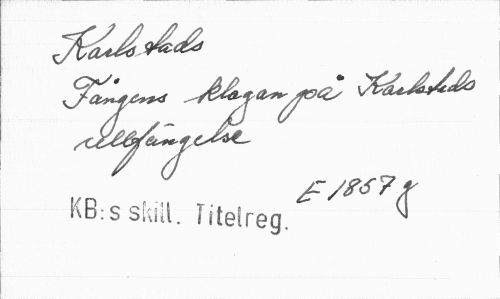 Karlstads
Fångens klagan på Karlstads
cellfängelse
E 1857 g
KB:s skill. Titelreg.